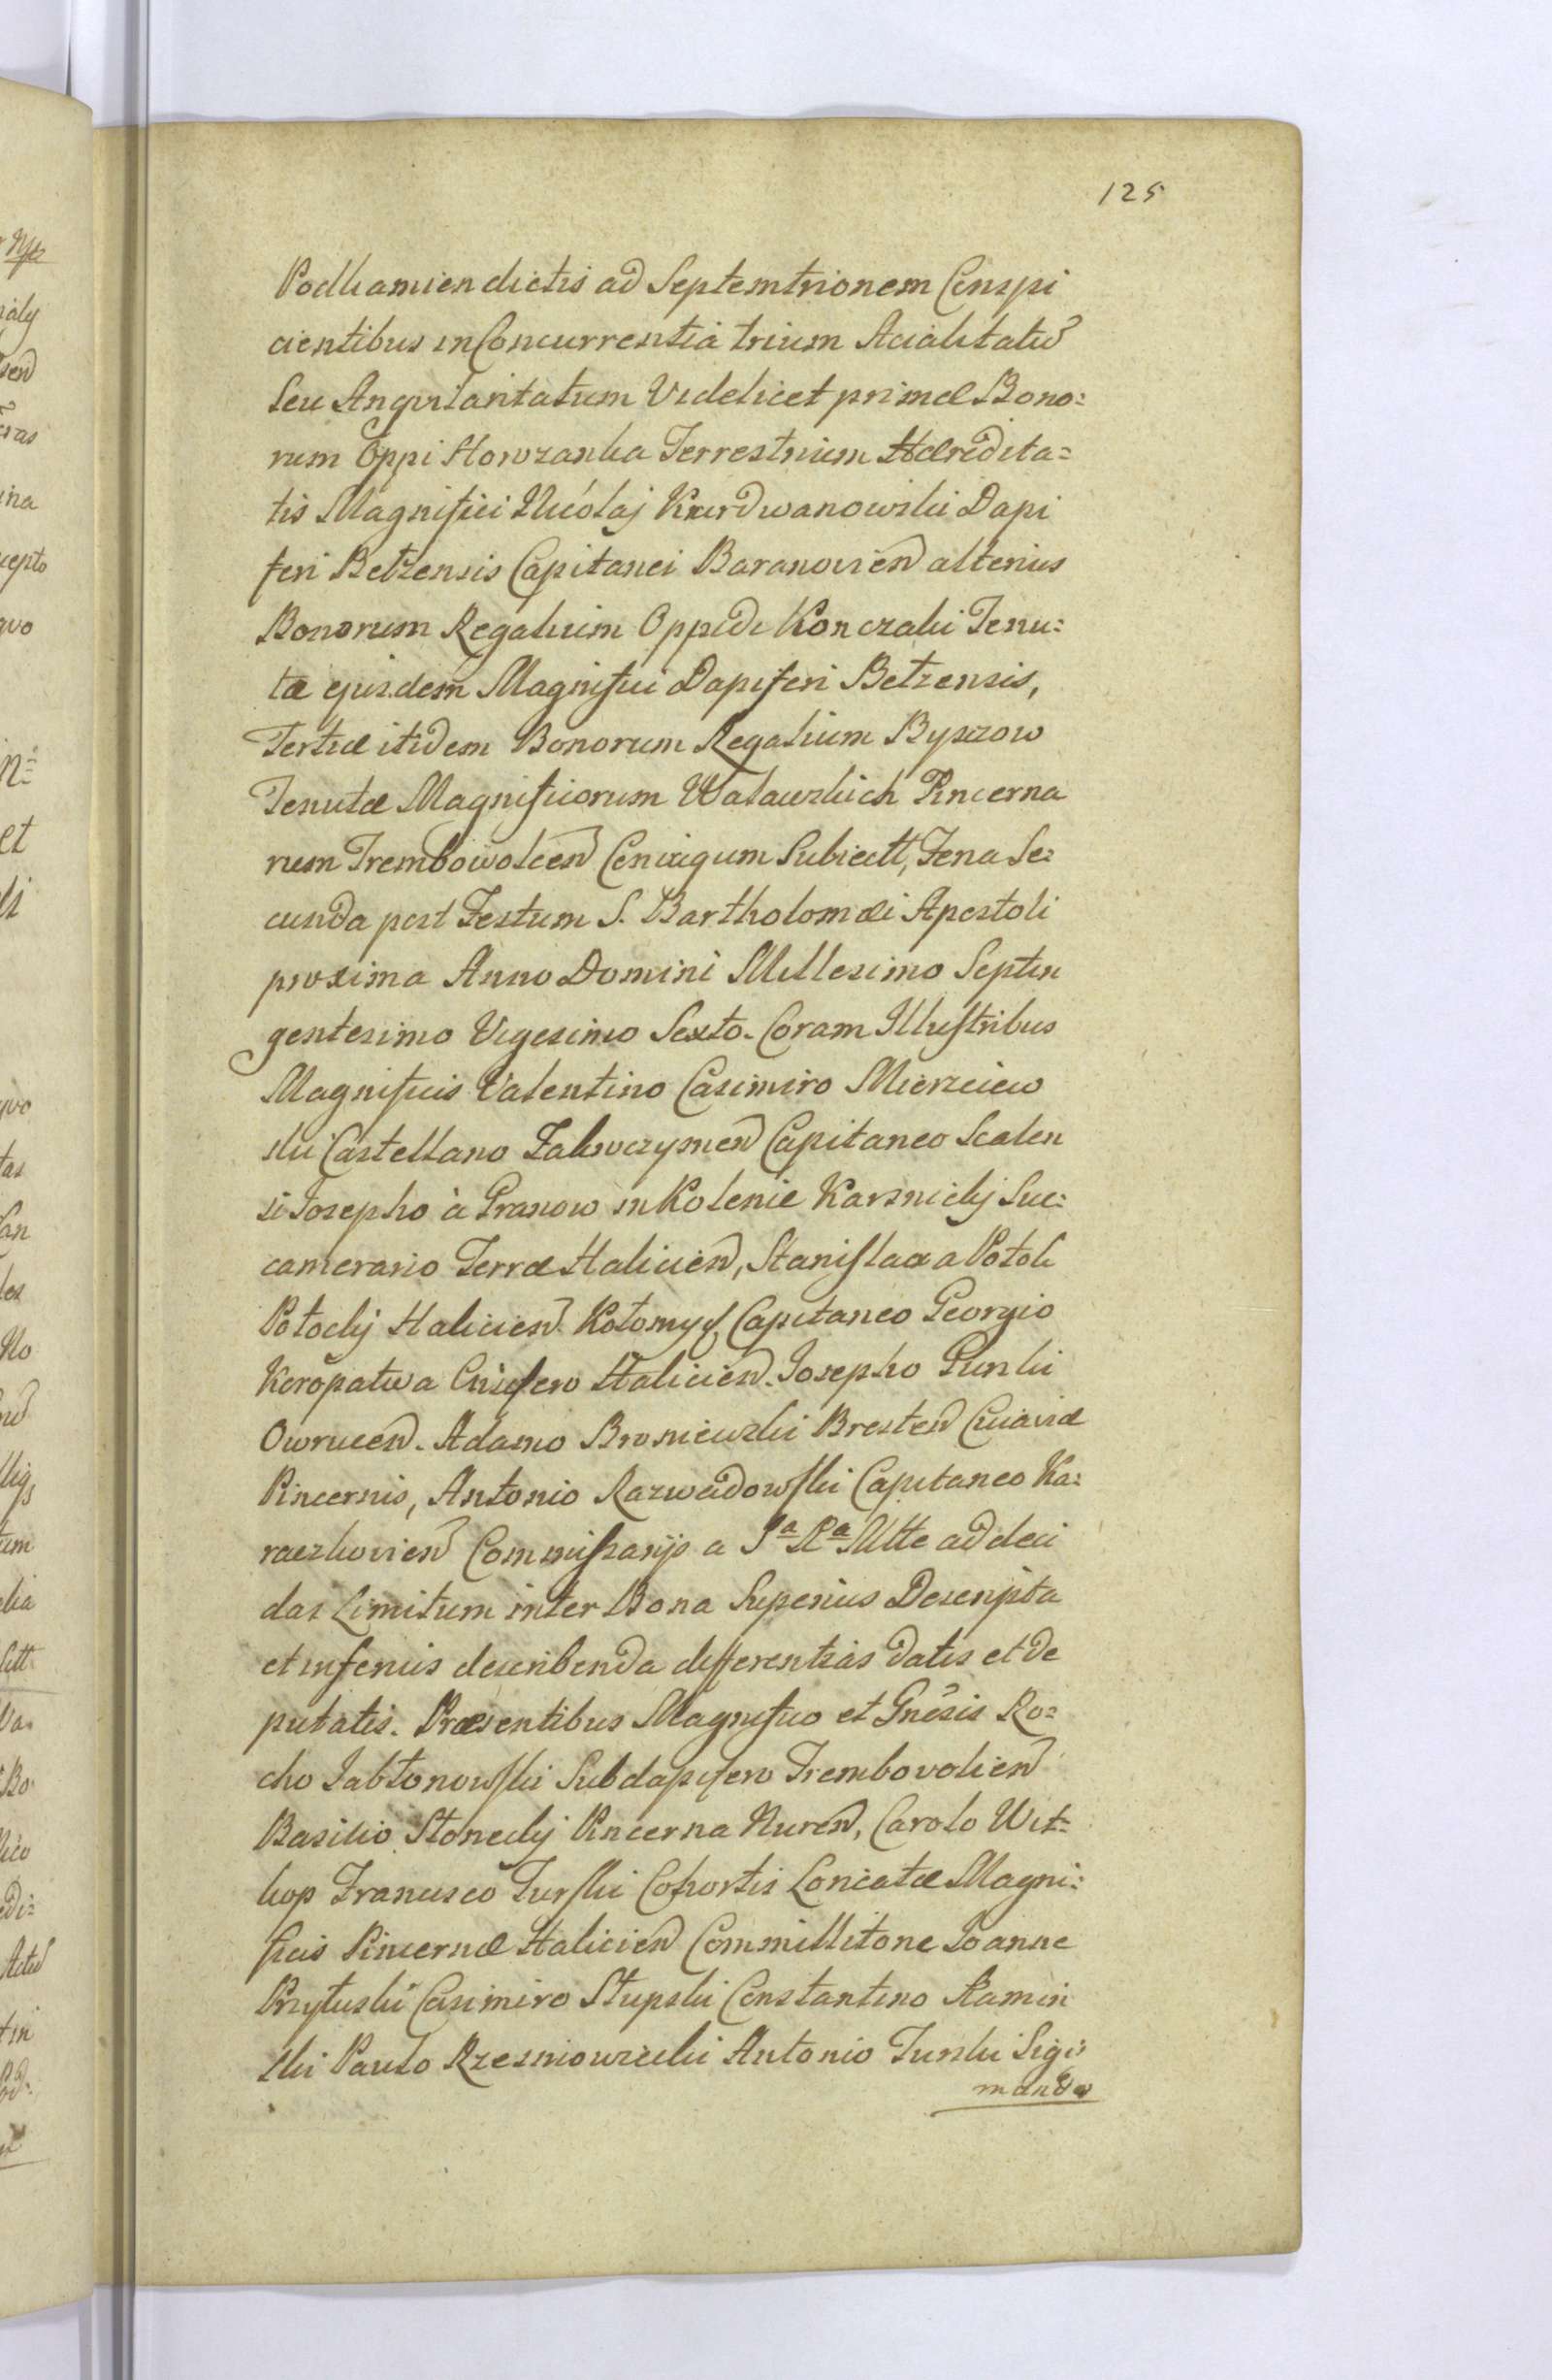 125
Podkamien dictis ad Septemtrionem Conspi
cientibus in Concurrentia trium Acialitatu
Seu Angvilaritatum Videlicet primæ Bono=
rum Oppi Horozanka Terrestrium Hæredita=
tis Magnifici Nicolaj Kurdwanowski Dapi
feri Betzensis Capitanei Baranovien alterius
Bonorum Regalium Oppidi Konczaki Tenu=
tæ ejusdem Magnifici Dapiferi Betzensis,
Tertiæ itidem Bonorum Regalium Byszow
Tenutæ Magnificorum Walawskich Pincerna
rum Trembowolcen Coniugum Subiectt, Feria Se=
cunda post Festum S. Bartholomæi Apostoli
proxima Anno Domini Millesimo Septin
gentesimo Vigesimo Sexto. Coram Illustribus
Magnificis Valentino Casimiro Mierzeiew
ski Castellano Zakroczymen Capitaneo Scalen
si Josepho à Granow in Kolenie Karsnickij Suc=
camerario Terræ Halicien, Stanislao a Potok
Potockij Halicien Kołomyg Capitaneo Georgio
Koropatwa Ensifero Halicien. Josepho Gurski
Owrucen. Adamo Broniewski Bresten Cuiaviæ
Pincernis, Antonio Rozwadowski Capitaneo Ka=
raczkovien Commissarijs a Sa Ra Mtte ad deci
das Limitum inter Bona Superius Descripta
et inferius describenda differentias datis et de
putatis. Præsentibus Magnifico et Gnosis Ro=
cho Jabłonowski Subdapifero Trembovolien
Basilio Słoneckij Pincerna Nuren, Carolo Wit=
kop Francisco Turski Cohortis Loricatæ Magni=
ficis Pincernæ Halicien Commilitone Joanne
Przyłuski Casimiro Słupski Constantino Kamin
ski Paulo Rzesniowiecki Antonio Turski Sigis
mundo